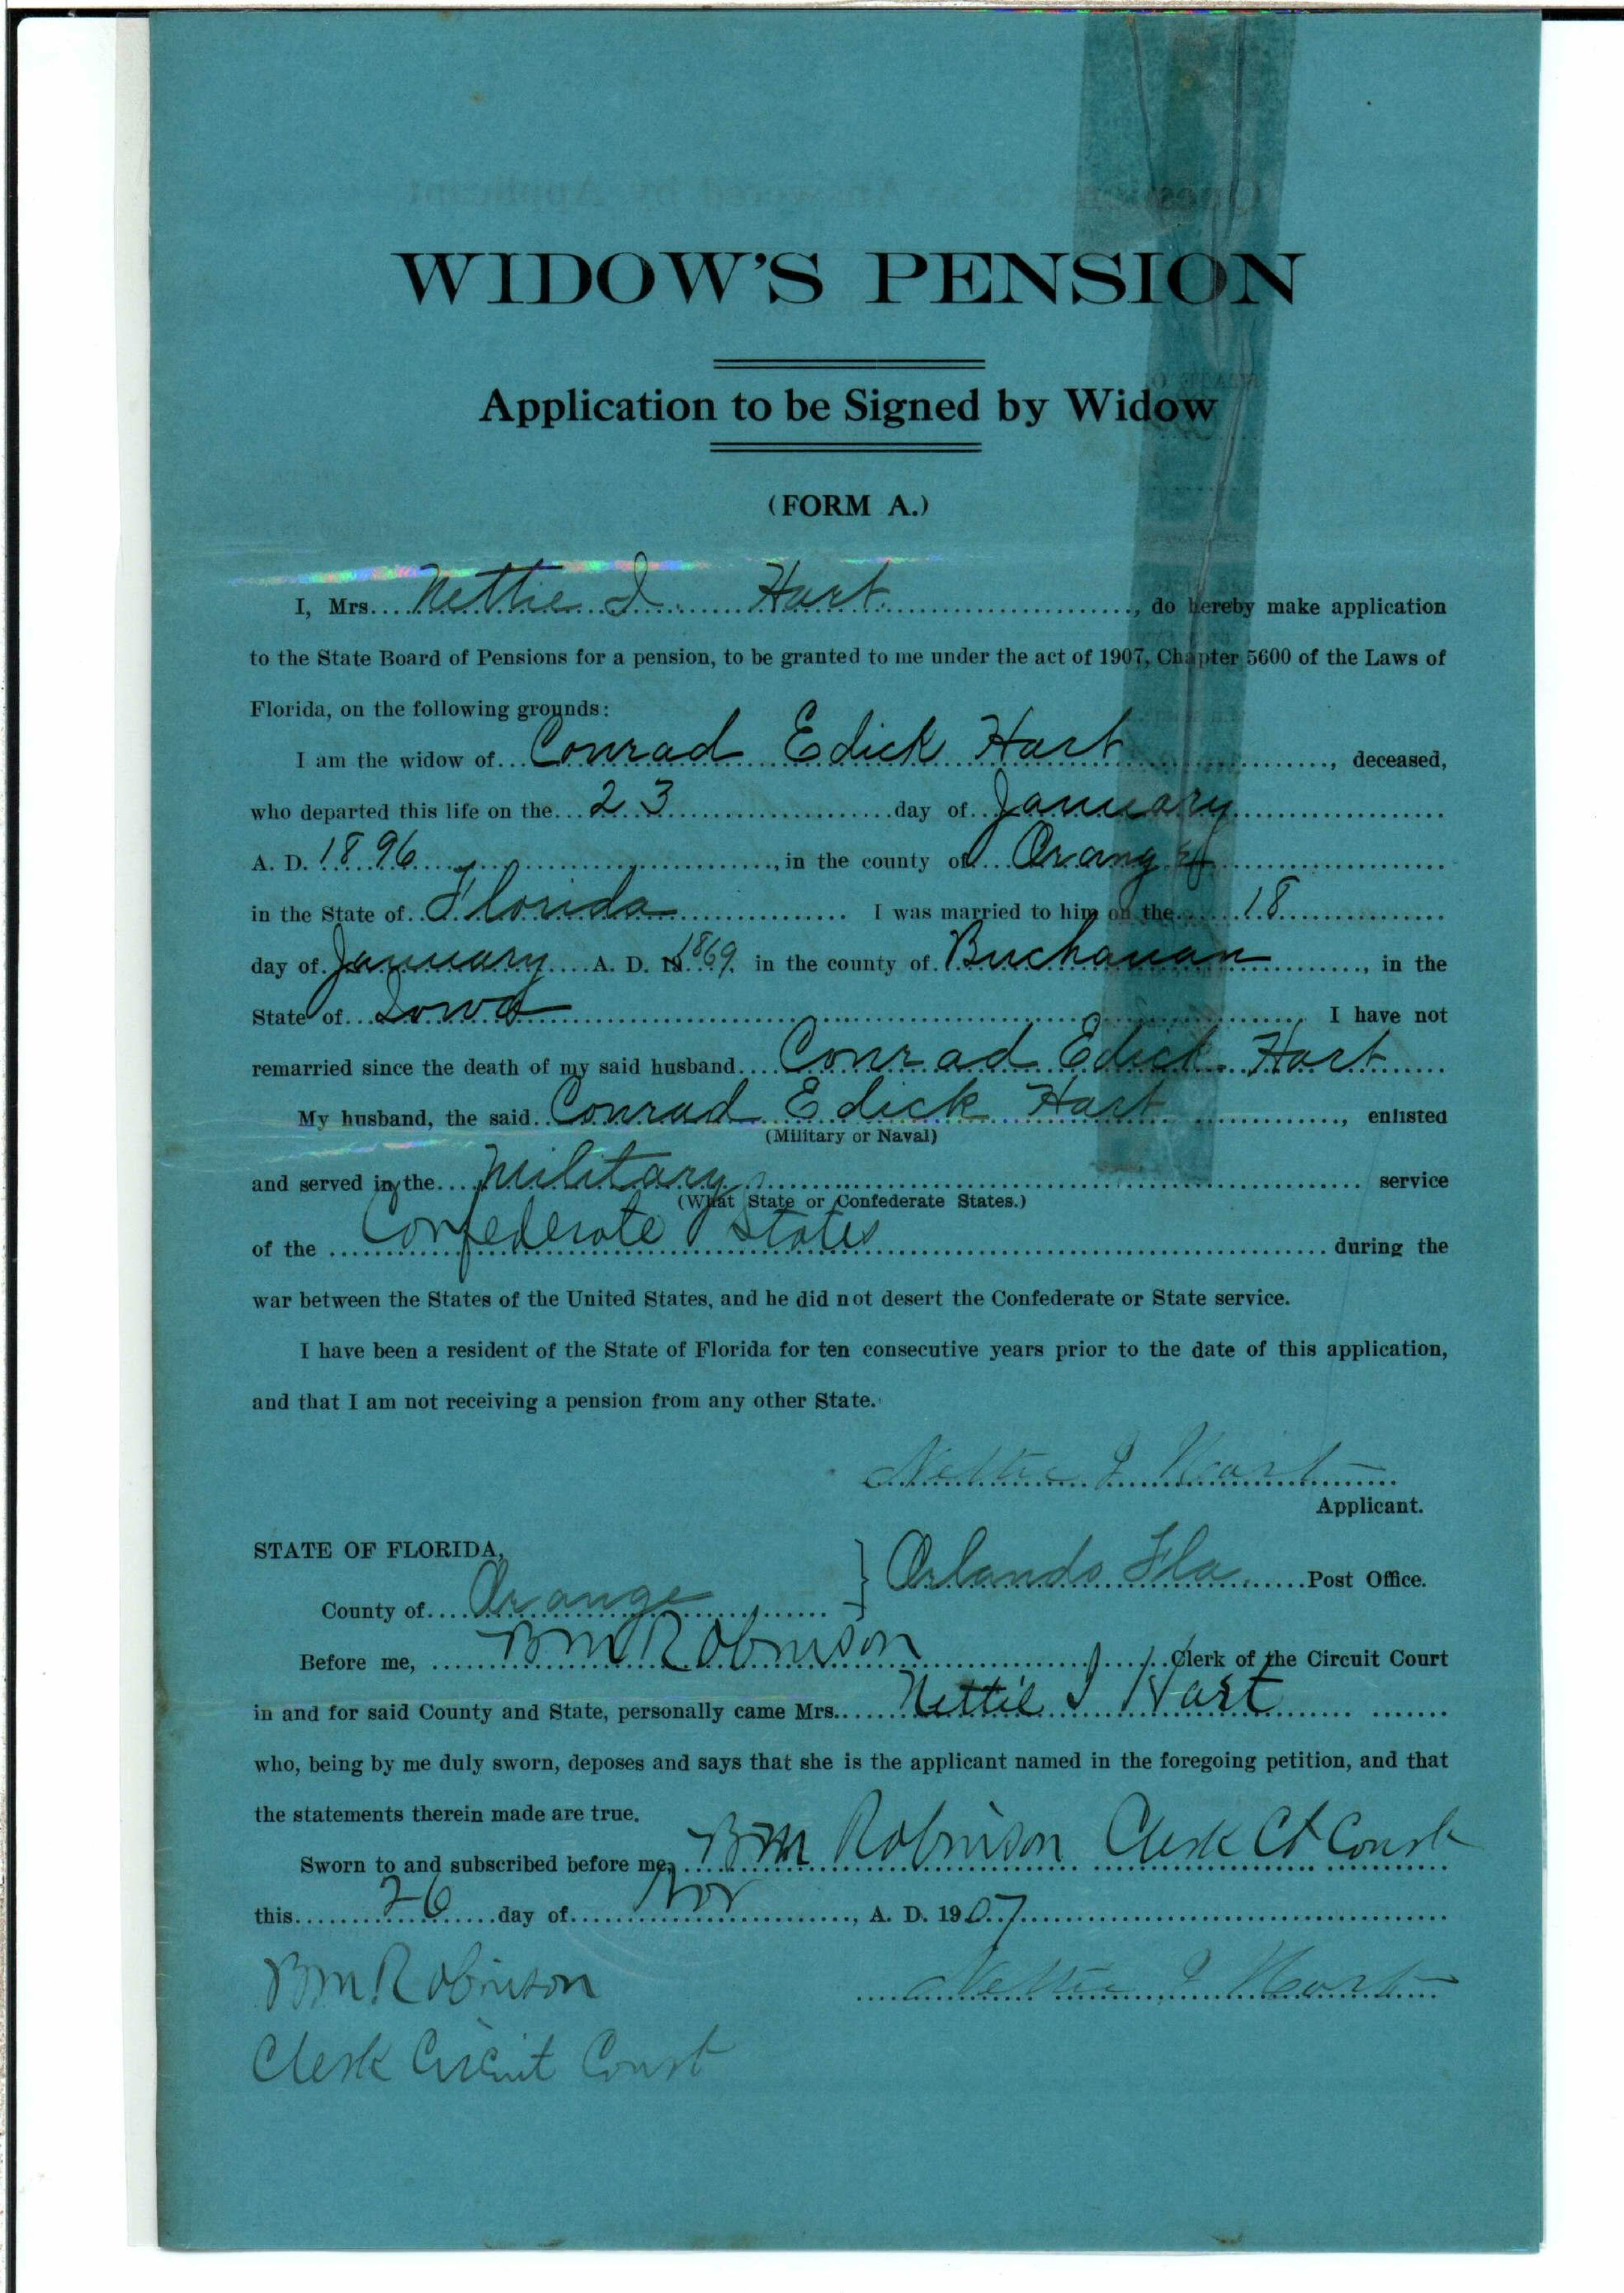 WIDOW'S PENSION
Application to be Signed by Widow
(FORM A.)
I, Mrs. Nettie I. Hart, do hereby make application
to the State Board of Pensions for a pension, to be granted to me under the act of 1907, Chapter 5600 of the Laws of
Florida, on the following grounds:
I am the widow of Conrad Edick Hart, deceased,
who departed this life on the 23 day of January
A. D. 1896, in the county of Orange
in the State of Florida I was married to him on the 18
day of January A. D. 1869 in the county of Buchanan, in the
State of Iowa I have not
remarried since the death of my said husband Conrad Edick Hart
My husband, the said Conrad Edick Hart, enlisted
(Military or Naval)
and served in the Military service
(What State or Confederate States.)
of the Confederate States during the
war between the States of the United States, and he did not desert the Confederate or State service.
I have been a resident of the State of Florida for ten consecutive years prior to the date of this application,
and that I am not receiving a pension from any other State.
Nettie I Hart
Applicant.
STATE OF FLORIDA,
Orlando Fla. Post Office.
County of Orange
Before me, BM Robinson Clerk of the Circuit Court
in and for said County and State, personally came Mrs. Nettie I Hart
who, being by me duly sworn, deposes and says that she is the applicant named in the foregoing petition, and that
the statements therein made are true.
Sworn to and subscribed before me, BM Robinson Clerk Ct Court
this 26 day of Nov, A. D. 1907
BM Robinson Nettie I Hart
Clerk Circuit Court